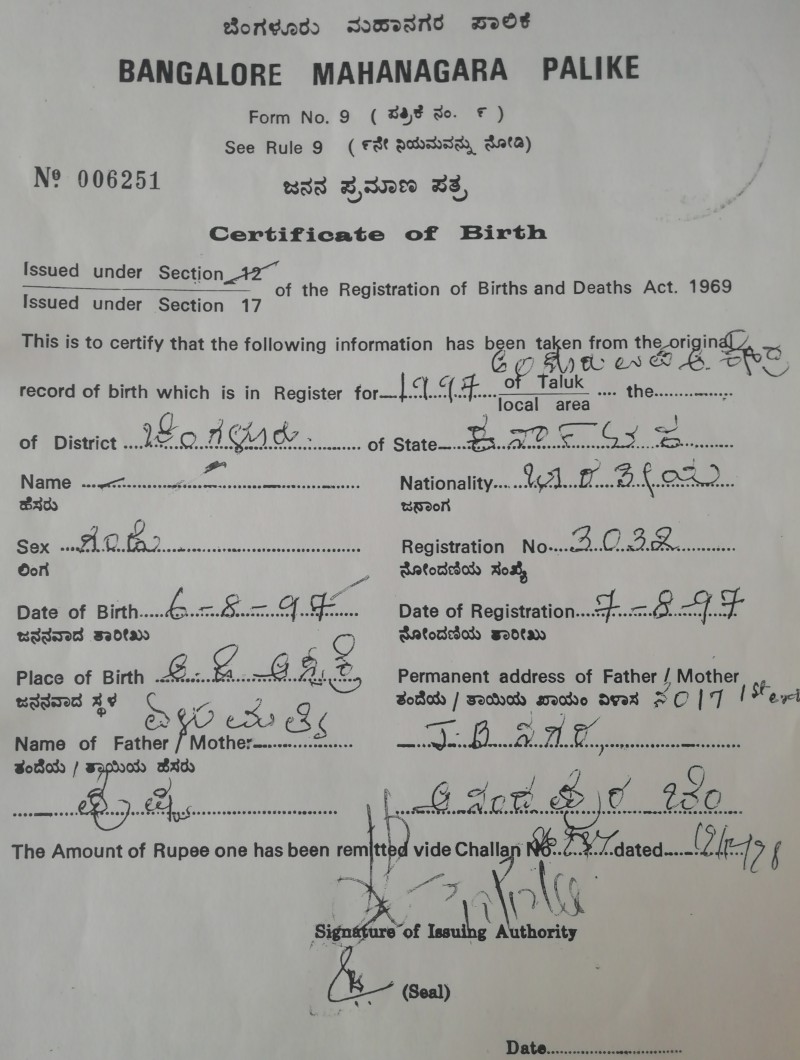 ಬೆಂಗಳೂರು ಮಹಾನಗರ ಪಾಲಿಕೆ
BANGALORE MAHANAGARA PALIKE
Form No. 9 ( ಪತ್ರಿಕೆ ನಂ. ೯ )
See Rule 9 ( ೯ನೇ ನಿಯಮವನ್ನು ನೋಡಿ)
Nº 006251
ಜನನ ಪ್ರಮಾಣ ಪತ್ರ
Certificate of Birth
Issued under Section 12
Issued under Section 17
of the Registration of Births and Deaths Act. 1969
This is to certify that the following information has been taken from the original
record of birth which is in Register for 1997 of Taluk the
local area
of District ಬೆಂಗಳೂರು of State ಕರ್ನಾಟಕ
Name Nationality ಭಾರತೀಯ
ಹೆಸರು ಜನಾಂಗ
Sex ಗಂಡು Registration No 3032
ಲಿಂಗ ನೋಂದಣಿಯ ಸಂಖ್ಯೆ
Date of Birth 6-8-97 Date of Registration 7-8-97
ಜನನವಾದ ತಾರೀಖು ನೋಂದಣಿಯ ತಾರೀಖು
Place of Birth Permanent address of Father / Mother
ಜನನವಾದ ಸ್ಥಳ ತಂದೆಯ / ತಾಯಿಯ ಖಾಯಂ ವಿಳಾಸ ನಂ 17 1st
Name of Father / Mother J.B ನಗರ,
ತಂದೆಯ / ತಾಯಿಯ ಹೆಸರು
ಬೆಂ
The Amount of Rupee one has been remitted vide Challan No dated
Signature of Issuing Authority
(Seal)
Date